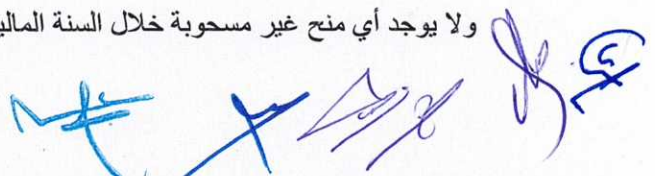 ولا يوجد أي منح غير مسحوبة خلال السنة